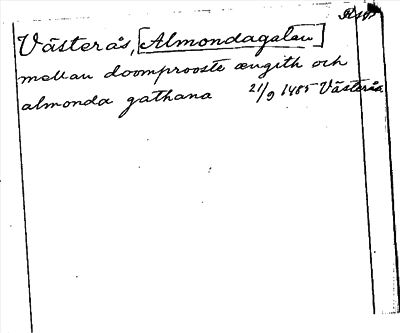 Västerås, [Almondagatan]
mellan doomprooste ængith och
almonda gathana 21/9 1485 Västerås